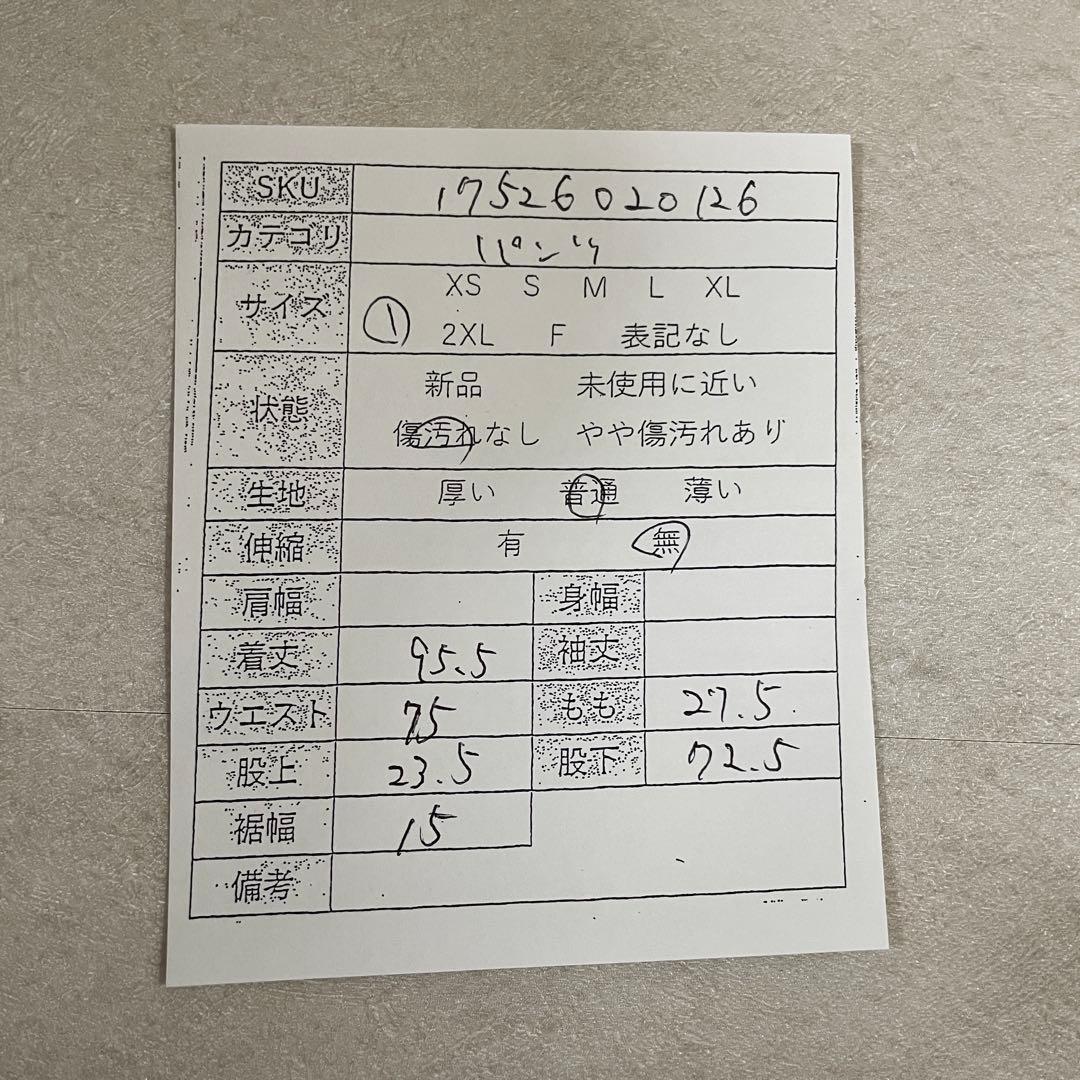 SKU 17526020126
カテゴリ パンツ
サイズ XS S M L XL
① 2XL F 表記なし
状態 新品 未使用に近い
傷汚れなし やや傷汚れあり
生地 厚い 普通 薄い
伸縮 有 無
肩幅 身幅
着丈 95.5 袖丈
ウエスト 75 もも 27.5
股上 23.5 股下 72.5
裾幅 15
備考